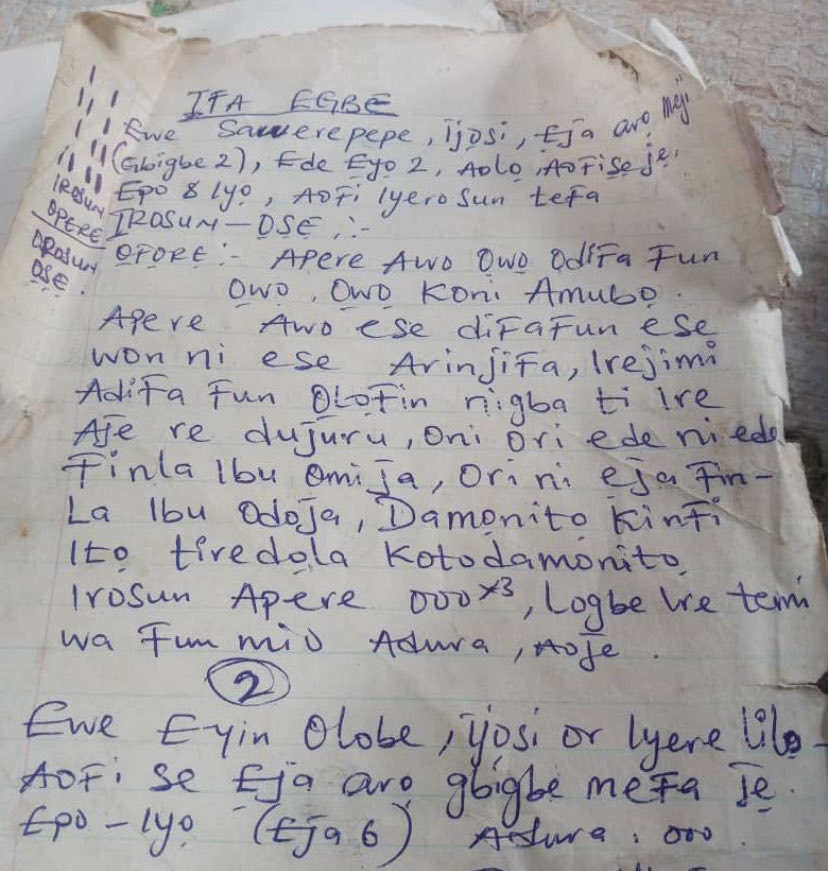 IFA EGBE
Ewe Sawerepepe, Ijosi, Eja arọ meji
(Gbigbe 2), Ede Eyọ 2, Aolọ, Aofisẹjẹ.
Epo & Iyọ, Aofi Iyerosun tefa
IROSUN
OPERE
OROSUN
ỌSẸ.
IROSUN — ỌSẸ :-
ỌFỌRẸ :- Apere Awo Ọwọ Odifa Fun
Ọwọ, Ọwọ Koni Amubọ.
Apere Awo ese difaFun ese
won ni ese Arinjifa, Irejimi
Adifa Fun Ọlọfin nigba ti Ire
Aje re dujuru, oni Ori ede ni ede
Finla Ibu omi ja, Ori ni ẹja Fin-
La Ibu Odoja, Damọnitọ Kinfi
Itọ tiredọla Kotodamonitọ
Irosun Apere 000 x3, Logbe Ire temi
wa Fun mi o Adura, Aojẹ.
2
Ewe Eyin Olobe, ijosi or Iyere Lilọ-
AOFi Se Ẹja arọ gbigbẹ mefa jẹ.
Epo - Iyọ (Eja 6) Adura : 000.